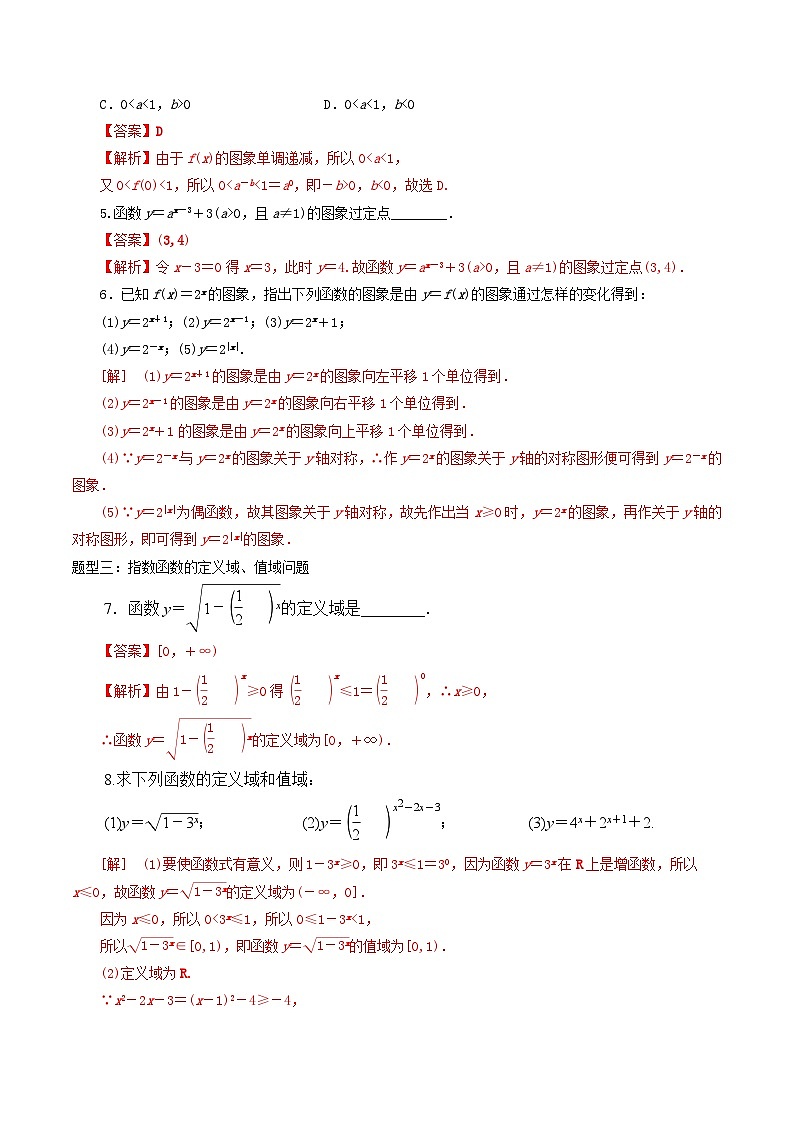 C．0<a<1，b>0　　D．0<a<1，b<0
【答案】D
【解析】由于 f(x)的图象单调递减，所以 0<a<1，
又 0<f(0)<1，所以 0<a⁻ᵇ<1＝a⁰，即－b>0，b<0，故选 D.
5.函数 y＝aˣ⁻³＋3(a>0，且 a≠1)的图象过定点________．
【答案】(3,4)
【解析】令 x－3＝0 得 x＝3，此时 y＝4.故函数 y＝aˣ⁻³＋3(a>0，且 a≠1)的图象过定点(3,4)．
6．已知 f(x)＝2ˣ的图象，指出下列函数的图象是由 y＝f(x)的图象通过怎样的变化得到：
(1)y＝2ˣ⁺¹；(2)y＝2ˣ⁻¹；(3)y＝2ˣ＋1；
(4)y＝2⁻ˣ；(5)y＝2^|x|．
[解]　(1)y＝2ˣ⁺¹的图象是由 y＝2ˣ的图象向左平移 1 个单位得到．
(2)y＝2ˣ⁻¹的图象是由 y＝2ˣ的图象向右平移 1 个单位得到．
(3)y＝2ˣ＋1 的图象是由 y＝2ˣ的图象向上平移 1 个单位得到．
(4)∵y＝2⁻ˣ与 y＝2ˣ的图象关于 y 轴对称，∴作 y＝2ˣ的图象关于 y 轴的对称图形便可得到 y＝2⁻ˣ的
图象．
(5)∵y＝2^|x|为偶函数，故其图象关于 y 轴对称，故先作出当 x≥0 时，y＝2ˣ的图象，再作关于 y 轴的
对称图形，即可得到 y＝2^|x|的图象．
题型三：指数函数的定义域、值域问题
7．函数 y＝√(1－(1/2)ˣ)的定义域是________．
【答案】[0，＋∞)
【解析】由 1－(1/2)ˣ≥0 得 (1/2)ˣ≤1＝(1/2)⁰，∴x≥0，
∴函数 y＝√(1－(1/2)ˣ)的定义域为[0，＋∞)．
8.求下列函数的定义域和值域：
(1)y＝√(1－3ˣ)；　　(2)y＝(1/2)^(x²－2x－3)；　　(3)y＝4ˣ＋2ˣ⁺¹＋2.
[解]　(1)要使函数式有意义，则 1－3ˣ≥0，即 3ˣ≤1＝3⁰，因为函数 y＝3ˣ在 R 上是增函数，所以
x≤0，故函数 y＝√(1－3ˣ)的定义域为(－∞，0]．
因为 x≤0，所以 0<3ˣ≤1，所以 0≤1－3ˣ<1，
所以√(1－3ˣ)∈[0,1)，即函数 y＝√(1－3ˣ)的值域为[0,1)．
(2)定义域为 R.
∵x²－2x－3＝(x－1)²－4≥－4，